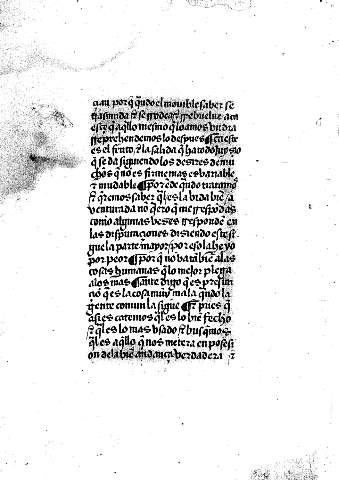 cian por q̄ q̄ndo el mouible saber se
trasmuda ⁊ se rrodea ⁊ rrebuelue acō
esçe q̄ aq̄llo mesmo q̄ loamos vn dia
rreprehendemos lo despues ¶ Et este
es el fruto ⁊ la salida q̄ ha todo juysio
q̄ se da siguiendo los desires de mu
chos q̄ no es firme mas es variable
⁊ mudable ¶ por ēde q̄ndo tratamos
⁊ q̄remos saber q̄l es la vida biē a
venturada no q̄ero q̄ me rrespōdas
como algunas veses rresponden en
las disputaciones disiendo esto si
gue la parte mayor por eso la he yo
por peor ¶ por q̄ no va tā biē a las
cosas humanas q̄ lo mejor plega
a los mas ¶ ante digo q̄ es presun
ciō q̄ es la cosa muy mala q̄ndo la
gente comun la sigue ¶ Et pues q̄
asi es catemos q̄l es lo biē fecho
⁊ q̄l es lo mas vsado ⁊ busq̄mos
q̄l es aq̄llo q̄ nos metera en posesi
on de la biē andança verdadera ⁊